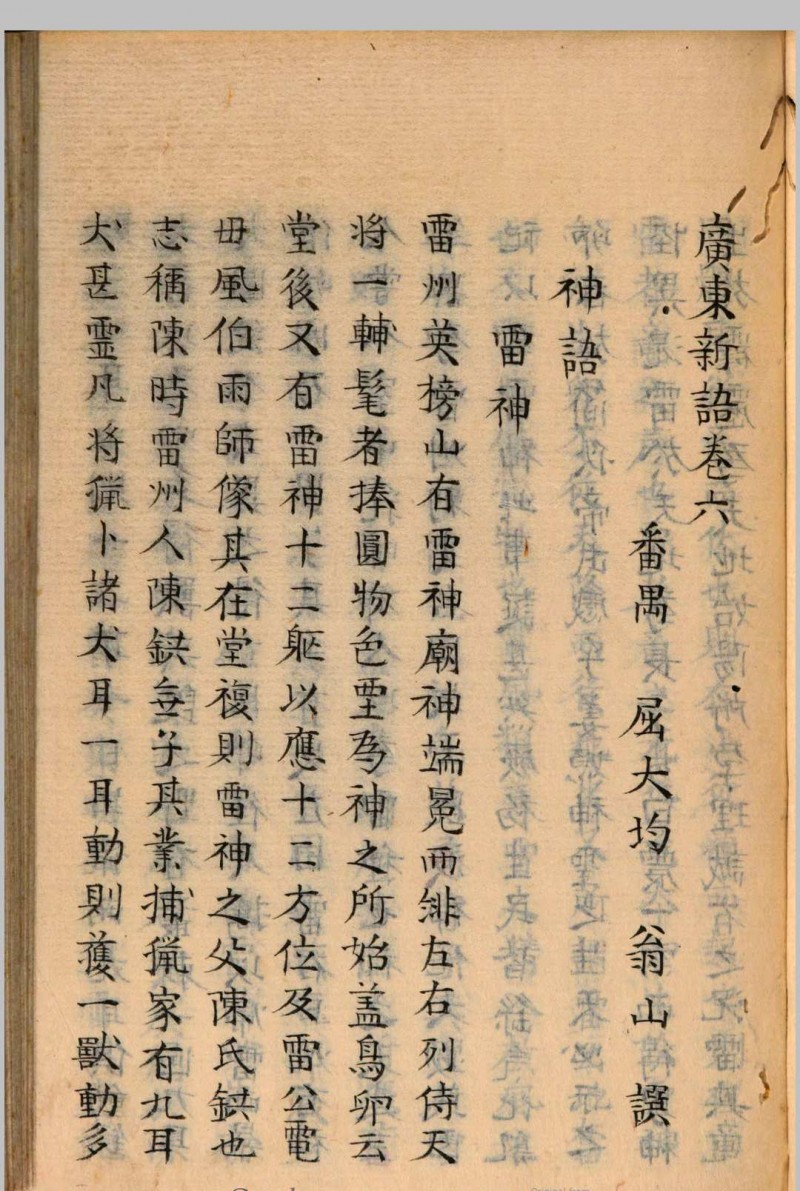 廣東新語卷六
番禺 屈大均 翁山 譔
神語
雷神
雷州英榜山有雷神廟神端冕而緋左右列侍天
將一輔髦者捧圓物色堊為神之所始蓋鳥卵云
堂後又有雷神十二軀以應十二方位及雷公電
毋風伯雨師像其在堂複則雷神之父陳氏鉷也
志稱陳時雷州人陳鉷無子其業捕猟家有九耳
犬甚靈凡将猟卜諸犬耳一耳動則獲一獸動多